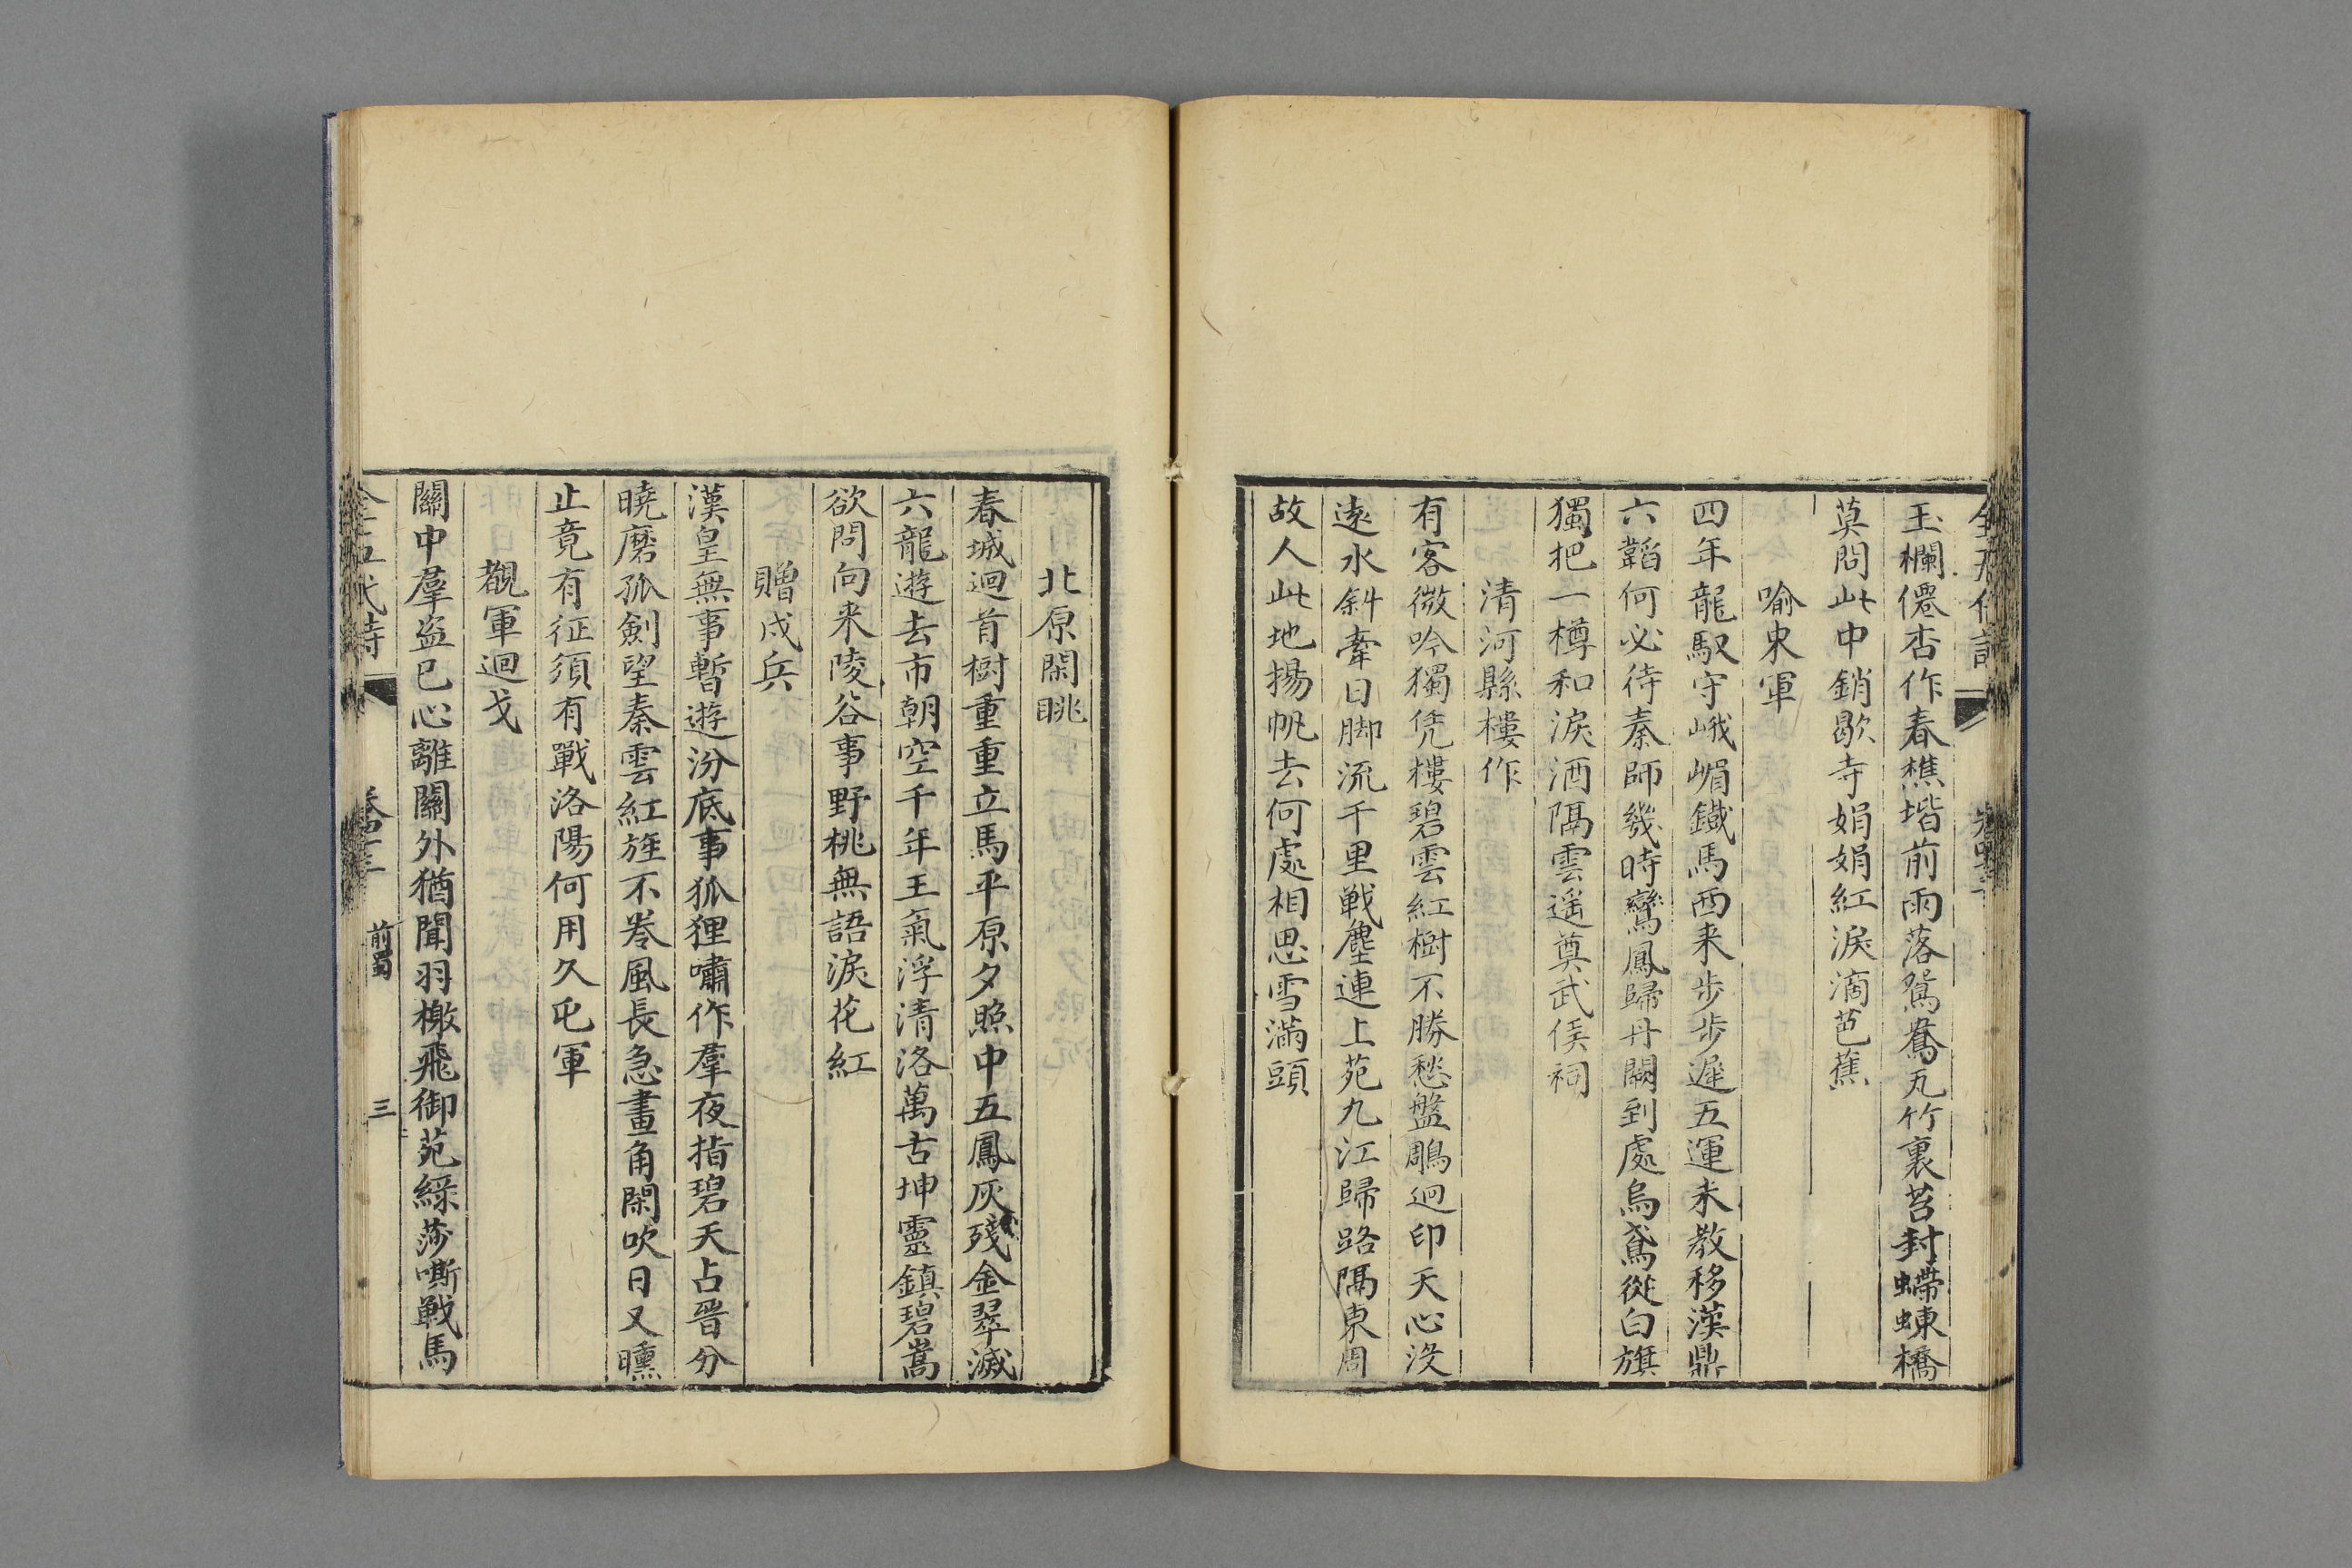 玉欄僊杏作春樵堦前雨落鴛鴦瓦竹裏苔封螮蝀橋
莫問此中銷歇寺娟娟紅淚滴芭蕉
喻東軍
四年龍馭守峨嵋鐵馬西来步步遲五運未教移漢鼎
六韜何必待秦師幾時鸞鳳歸丹闕到處烏鳶從白旗
獨把一樽和淚酒隔雲遥奠武侯祠
清河縣樓作
有客微吟獨凭樓碧雲紅樹不勝愁盤鵰迥印天心没
遠水斜牽日脚流千里戰塵連上苑九江歸路隔東周
故人此地揚帆去何處相思雪滿頭
北原閑眺
春城迴首樹重重立馬平原夕照中五鳳灰殘金翠滅
六龍遊去市朝空千年王氣浮清洛萬古坤靈鎮碧嵩
欲問向来陵谷事野桃無語淚花紅
贈戍兵
漢皇無事暫遊汾底事狐狸嘯作羣夜指碧天占晉分
曉磨孤劍望秦雲紅旌不卷風長急畫角閑吹日又曛
止竟有征須有戰洛陽何用久屯軍
觀軍迴戈
關中羣盗已心離關外猶聞羽檄飛御苑綠莎嘶戰馬
全五代詩
前蜀
三